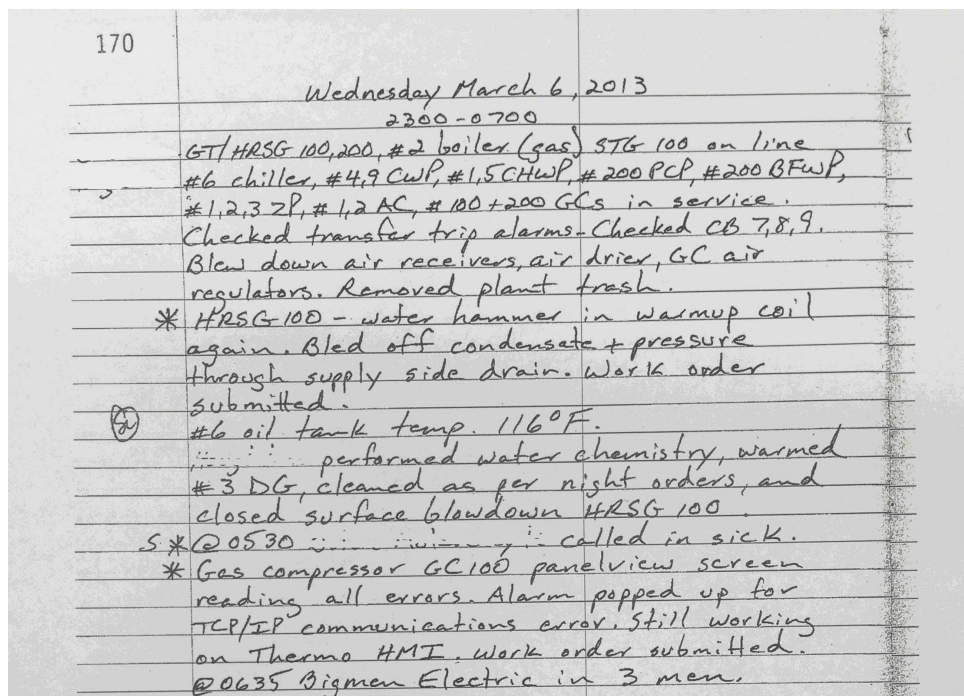 170
Wednesday March 6, 2013
2300-0700
GT/HRSG 100,200, #2 boiler (gas) STG 100 on line
#6 chiller, #4,9 CWP, #1,5 CHWP, #200 PCP, #200 BFWP,
#1,2,3 ZP, #1,2 AC, #100+200 GCs in service.
Checked transfer trip alarms - Checked CB 7,8,9.
Blew down air receivers, air drier, GC air
regulators. Removed plant trash.
* HRSG 100 - water hammer in warmup coil
again. Bled off condensate + pressure
through supply side drain. Work order
submitted.
#6 oil tank temp. 116°F.
performed water chemistry, warmed
#3 DG, cleaned as per night orders, and
closed surface blowdown HRSG 100.
S * @ 0530 called in sick.
* Gas compressor GC100 panelview screen
reading all errors. Alarm popped up for
TCP/IP communications error. Still working
on Thermo HMI. Work order submitted.
@0635 Bigmen Electric in 3 men.